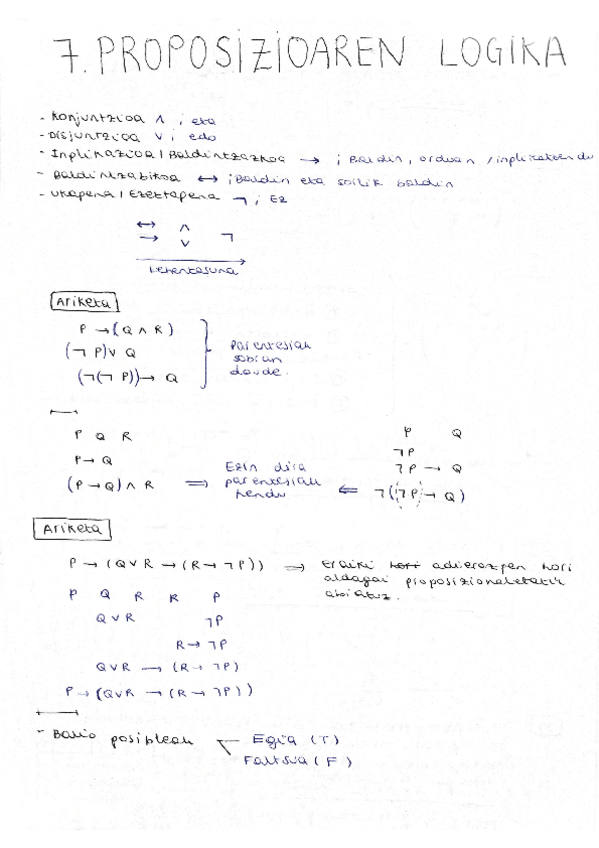 7. PROPOSIZIOAREN LOGIKA
- Konjuntzioa ∧ ; eta
- Disjuntzioa ∨ ; edo
- Inplikazioa / Baldintzazkoa → ; Baldin, orduan / inplikatzen du
- Baldintzabikoa ↔ ; Baldin eta soilik baldin
- Ukapena / Ezeztapena ¬ ; Ez
↔ ∧
→ ∨ ¬
Lehentasuna
Ariketa
P → (Q ∧ R)
(¬ P) ∨ Q
(¬(¬ P)) → Q
parentesiak
sobran
daude.
P Q R
P → Q
(P → Q) ∧ R ⇒ Ezin dira
parentesiak
kendu
P Q
¬P
¬P → Q
⇐ ¬(¬P → Q)
Ariketa
P → (Q ∨ R → (R → ¬P)) ⇒ Eraiki adierazpen hori
aldagai proposizionaletatik
abiatuz.
P Q R R P
Q ∨ R ¬P
R → ¬P
Q ∨ R → (R → ¬P)
P → (Q ∨ R → (R → ¬P))
- Balio posibleak Egia (T)
Faltsua (F)